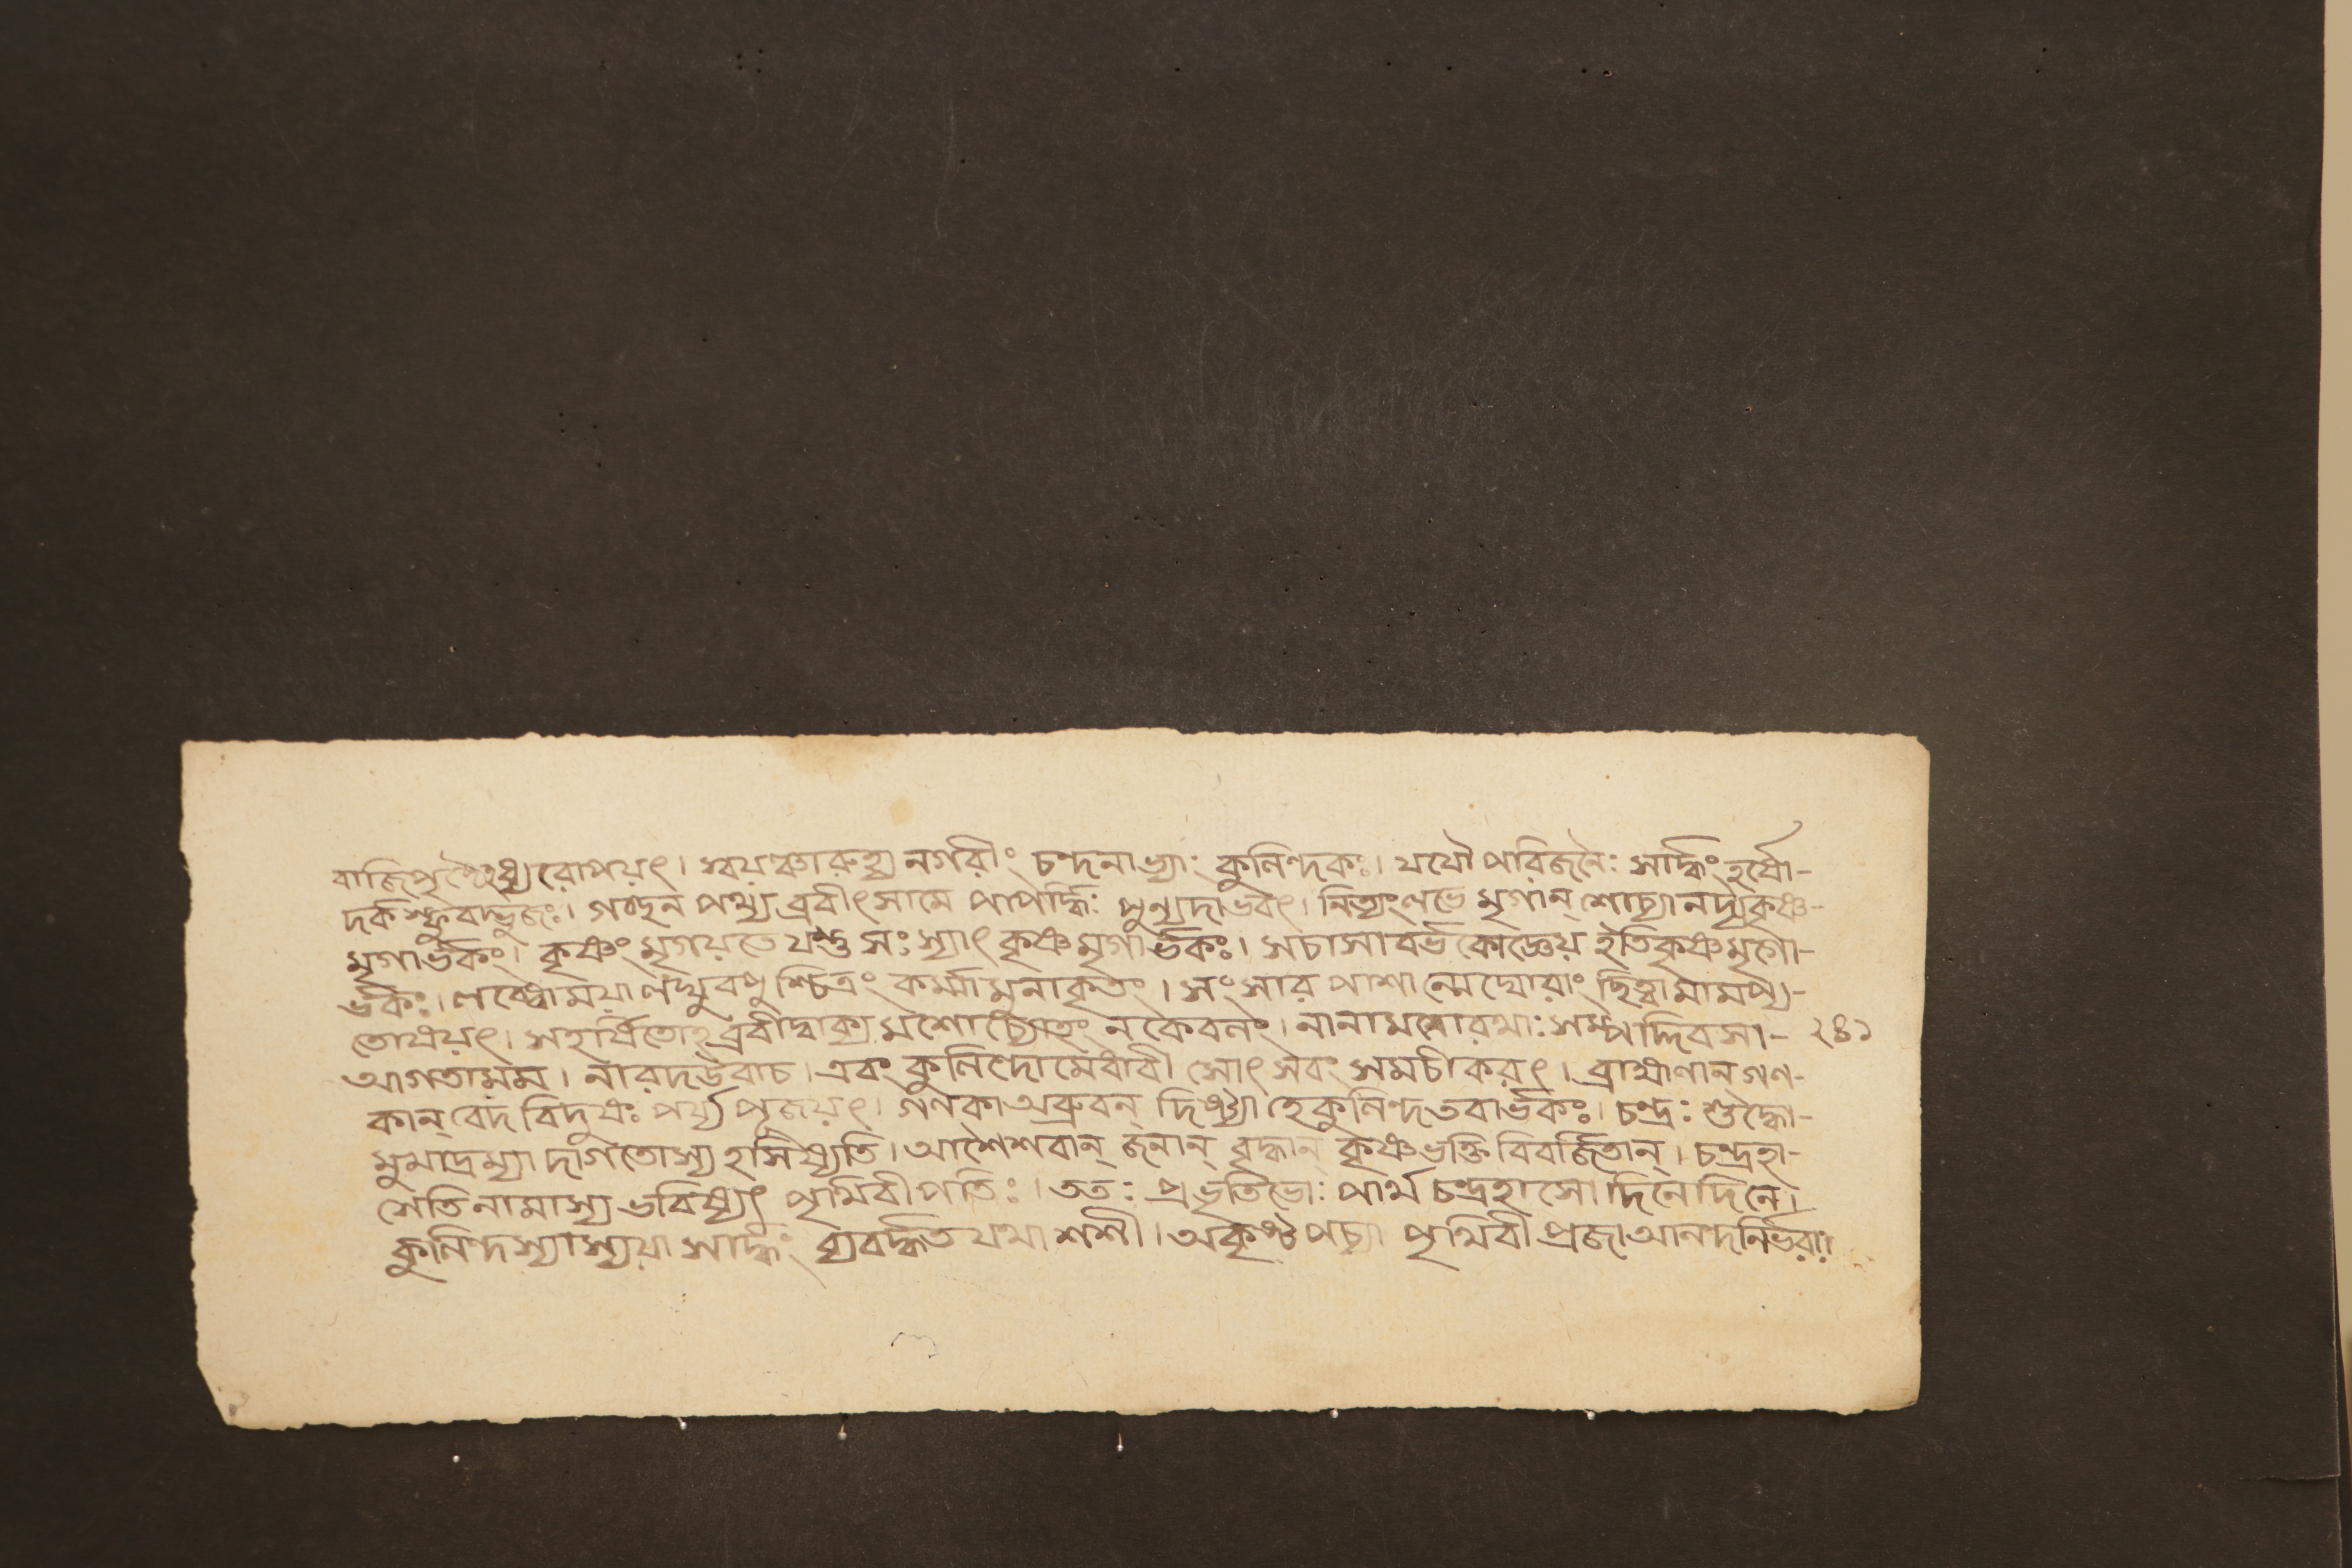 বাজিপৃষ্ঠেঽধ্যরোপয়ৎ। স্বয়ঞ্চারুহ্য নগরীং চন্দনাভ্যাং কুলিন্দকঃ। যযৌ পরিজনৈঃ সার্দ্ধং হর্ষো-
দর্কস্ফুরদ্ভুজঃ। গচ্ছন পথ্য ব্রবীৎ সামে পাপর্দ্ধিঃ পুন্যদাভবৎ। নিত্যং লভে মৃগান্ শোচ্যানদ্যকৃষ্ণ-
মৃগার্ভকং। কৃষ্ণং মৃগয়তে যস্তু সঃ স্যাৎ কৃষ্ণমৃগার্ভকঃ। সচাসাবর্ভকোজ্ঞেয় ইতিকৃষ্ণমৃগা-
র্ভকঃ। লব্ধোময়া লঘুবপুশ্চিত্রং কর্ম্মামুনাকৃতং। সংসার পাশান্মেঘোরাং ছিত্ত্বামামপ্য-
তোষয়ৎ। সহর্ষিতোঽব্রবীদ্বাক্য মশোচ্যোহং নকেবলং। নানামনোরথাঃ সম্পদ্দিবসা- ২৪১
আগতামম। নারদউবাচ। এবং কুলিন্দোমেধাবী সোৎসবং সমচীকরৎ। ব্রাহ্মণান্ গণ-
কান্ বেদ বিদুষঃ পর্য্য পূজয়ৎ। গণকা অব্রুবন্ দিষ্ট্যা হেকুলিন্দ তবার্ভকঃ। চন্দ্রঃ শুদ্ধো-
মুখাদ্রম্যা দাগতোস্য হসিষ্যতি। আশৈশবান্ জনান্ বৃদ্ধান্ কৃষ্ণভক্তি বিবর্জিতান্। চন্দ্রহা-
সেতি নামাস্য ভবিষ্যৎ পৃথিবীপতিঃ। ততঃ প্রভৃতিভোঃ পার্থ চন্দ্রহাসো দিনেদিনে।
কুলিন্দস্যাস্যয়া সার্দ্ধং ব্যবর্দ্ধত যথা শশী। অকৃষ্ট পচ্যা পৃথিবী প্রজা আনন্দনির্ভরাঃ